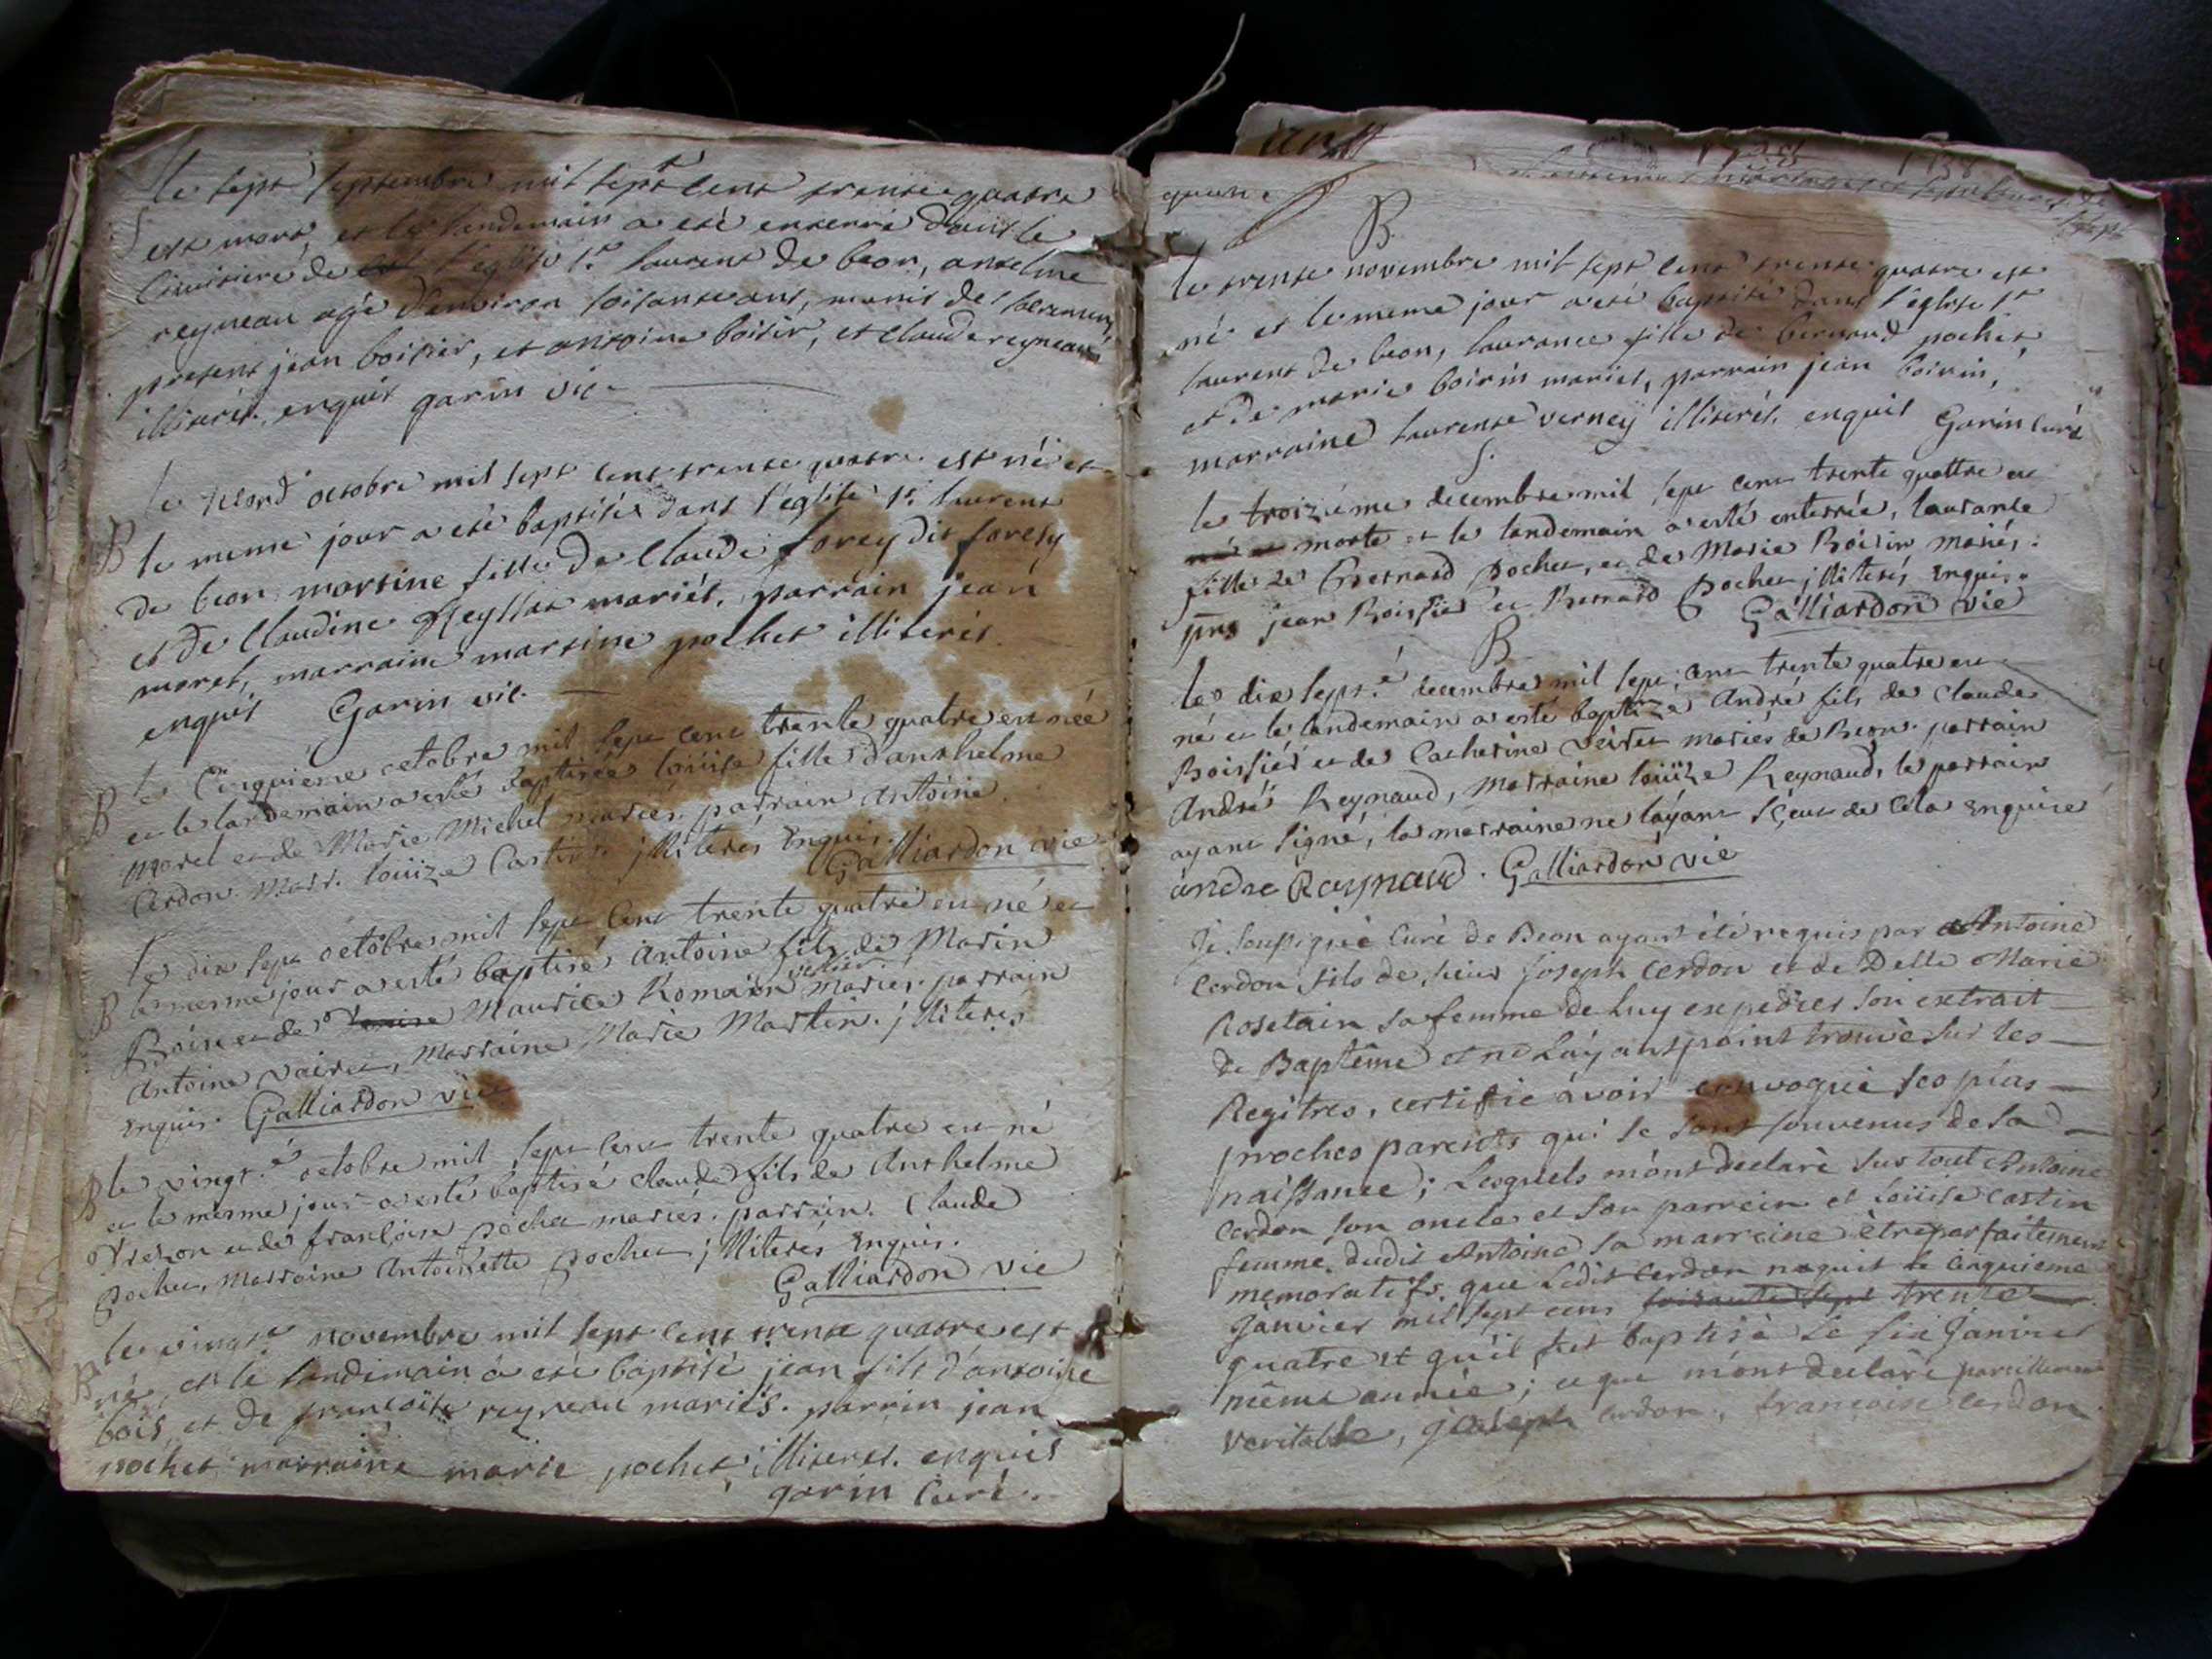 le sept septembre mil sept cent trente quatre
S est mort, et le landemain a eté enterré dans le
cimitiere de l'eglise st laurent de beon, anselme
reyneau agé d'environ soisante ans, munis des sacremens
present jean boisier, et antoine boisir, et claude reyneau
illiterés. enquis garin vic.
le second octobre mil sept cent trente quatre est née et
B le meme jour a eté baptisée dans l'eglise st. laurent
de beon martine fille de claude forey dit foresy
et de claudine mariés, parrain jean
moret, marraine martine pochet illiterés
enquis Garin vic.
B le cinquieme octobre mil sept cent trente quatre est née
et le landemain a esté baptisée loüise fille d'anthelme
morel et de Marie Michel mariés. parrain antoine
Cerdon. Marr. loüize Castin. jlliterés Enquis.
Galliardon vic
le dix sept octobre mil sept cent trente quatre est né et
B le mesme jour a esté baptisé antoine fils de Marin
Boin et de Maurice Romain mariés. parrain
antoine vairet, Marraine Marie Martin. jlliterés
enquis. Galliardon vic
B le vingt.e octobre mil sept cent trente quatre est né
et le mesme jour a esté baptisé claude fils de Anthelme
Trezon et de françoise pochet mariés. parrain. Claude
pochet, Marraine Antoinette pochet jlliterés Enquis.
Galliardon vic
le vingt.e novembre mil sept cent trente quatre est
B né, et le landemain a eté baptisé jean fils d'antoine
bois, et de francoise reyneau mariés. parrin jean
pochet marraine marie pochet illiterés. enquis
garin curé.
B
le trente novembre mil sept cent trente quatre est
né et le meme jour a eté baptisé dans l'eglise st
laurent de beon, laurance fille de bernard pochet,
et de marie boirin mariés, parrain jean boirin,
marraine laurense verney illiterés. enquis Garin curé
S.
le troizième decembre mil sept cent trente quattre est
né et morte et le landemain a esté enterrée, laurance
fille de Bernard pochet, et de Marie Boisin mariés.
pnts jean Boissie et Bernard pochet jlliterés Enquis.
Galliardon vic
B
le dix sept.e decembre mil sept cent trente quatre est
né et le landemain a esté baptizé André fils de Claude
Boissier et de Catherine veiret mariés de Beon. parrain
André Reynaud, Marraine loüize Reynaud, le parrain
ayant signé, la marraine ne l'ayant sçeut de cela Enquise
andre Raynaud. Galliardon vic
Je soussigné Curé de Beon ayant été requis par Antoine
Cerdon fils de sieur joseph Cerdon et de Delle Marie
Rosetain sa femme de luy expedier son extrait
de Baptême et ne l'ayant point trouvé sur les
Regitres, certifie avoir convoqué ses plus
proches parents qui se sont souvenus de sa
naissance; lesquels m'ont declaré surtout Antoine
cerdon son oncle et son parrein et Loüise castin
femme dudit Antoine sa marreine être parfaitement
memoratifs, que ledit cerdon naquit le cinquieme
janvier mil sept cens soixante sept trente
quatre et qu'il fut baptisé le six janvier
même année; ce que m'ont declaré pareillement
veritable, joseph cerdon, francoise cerdon